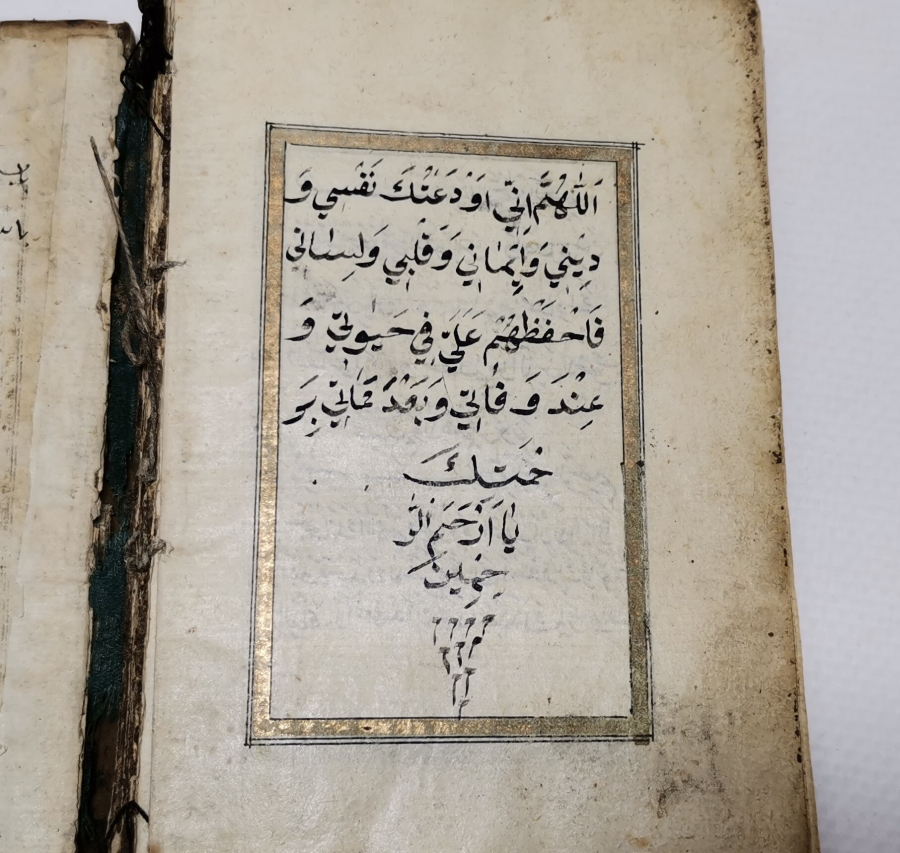 اَللّٰهُمَّ اِنِّي اَوْدَعْتُكَ نَفْسِي وَ
دِيْنِي وَاِيْمَانِي وَقَلْبِي وَلِسَانِي
فَاحْفَظْهُمْ عَلَيَّ فِي حَيٰوتِي وَ
عِنْدَ وَفَاتِي وَبَعْدَ مَمَاتِي بِرَ
حْمَتِكَ
يَا اَرْحَمَ الرَّا
حِمِينَ